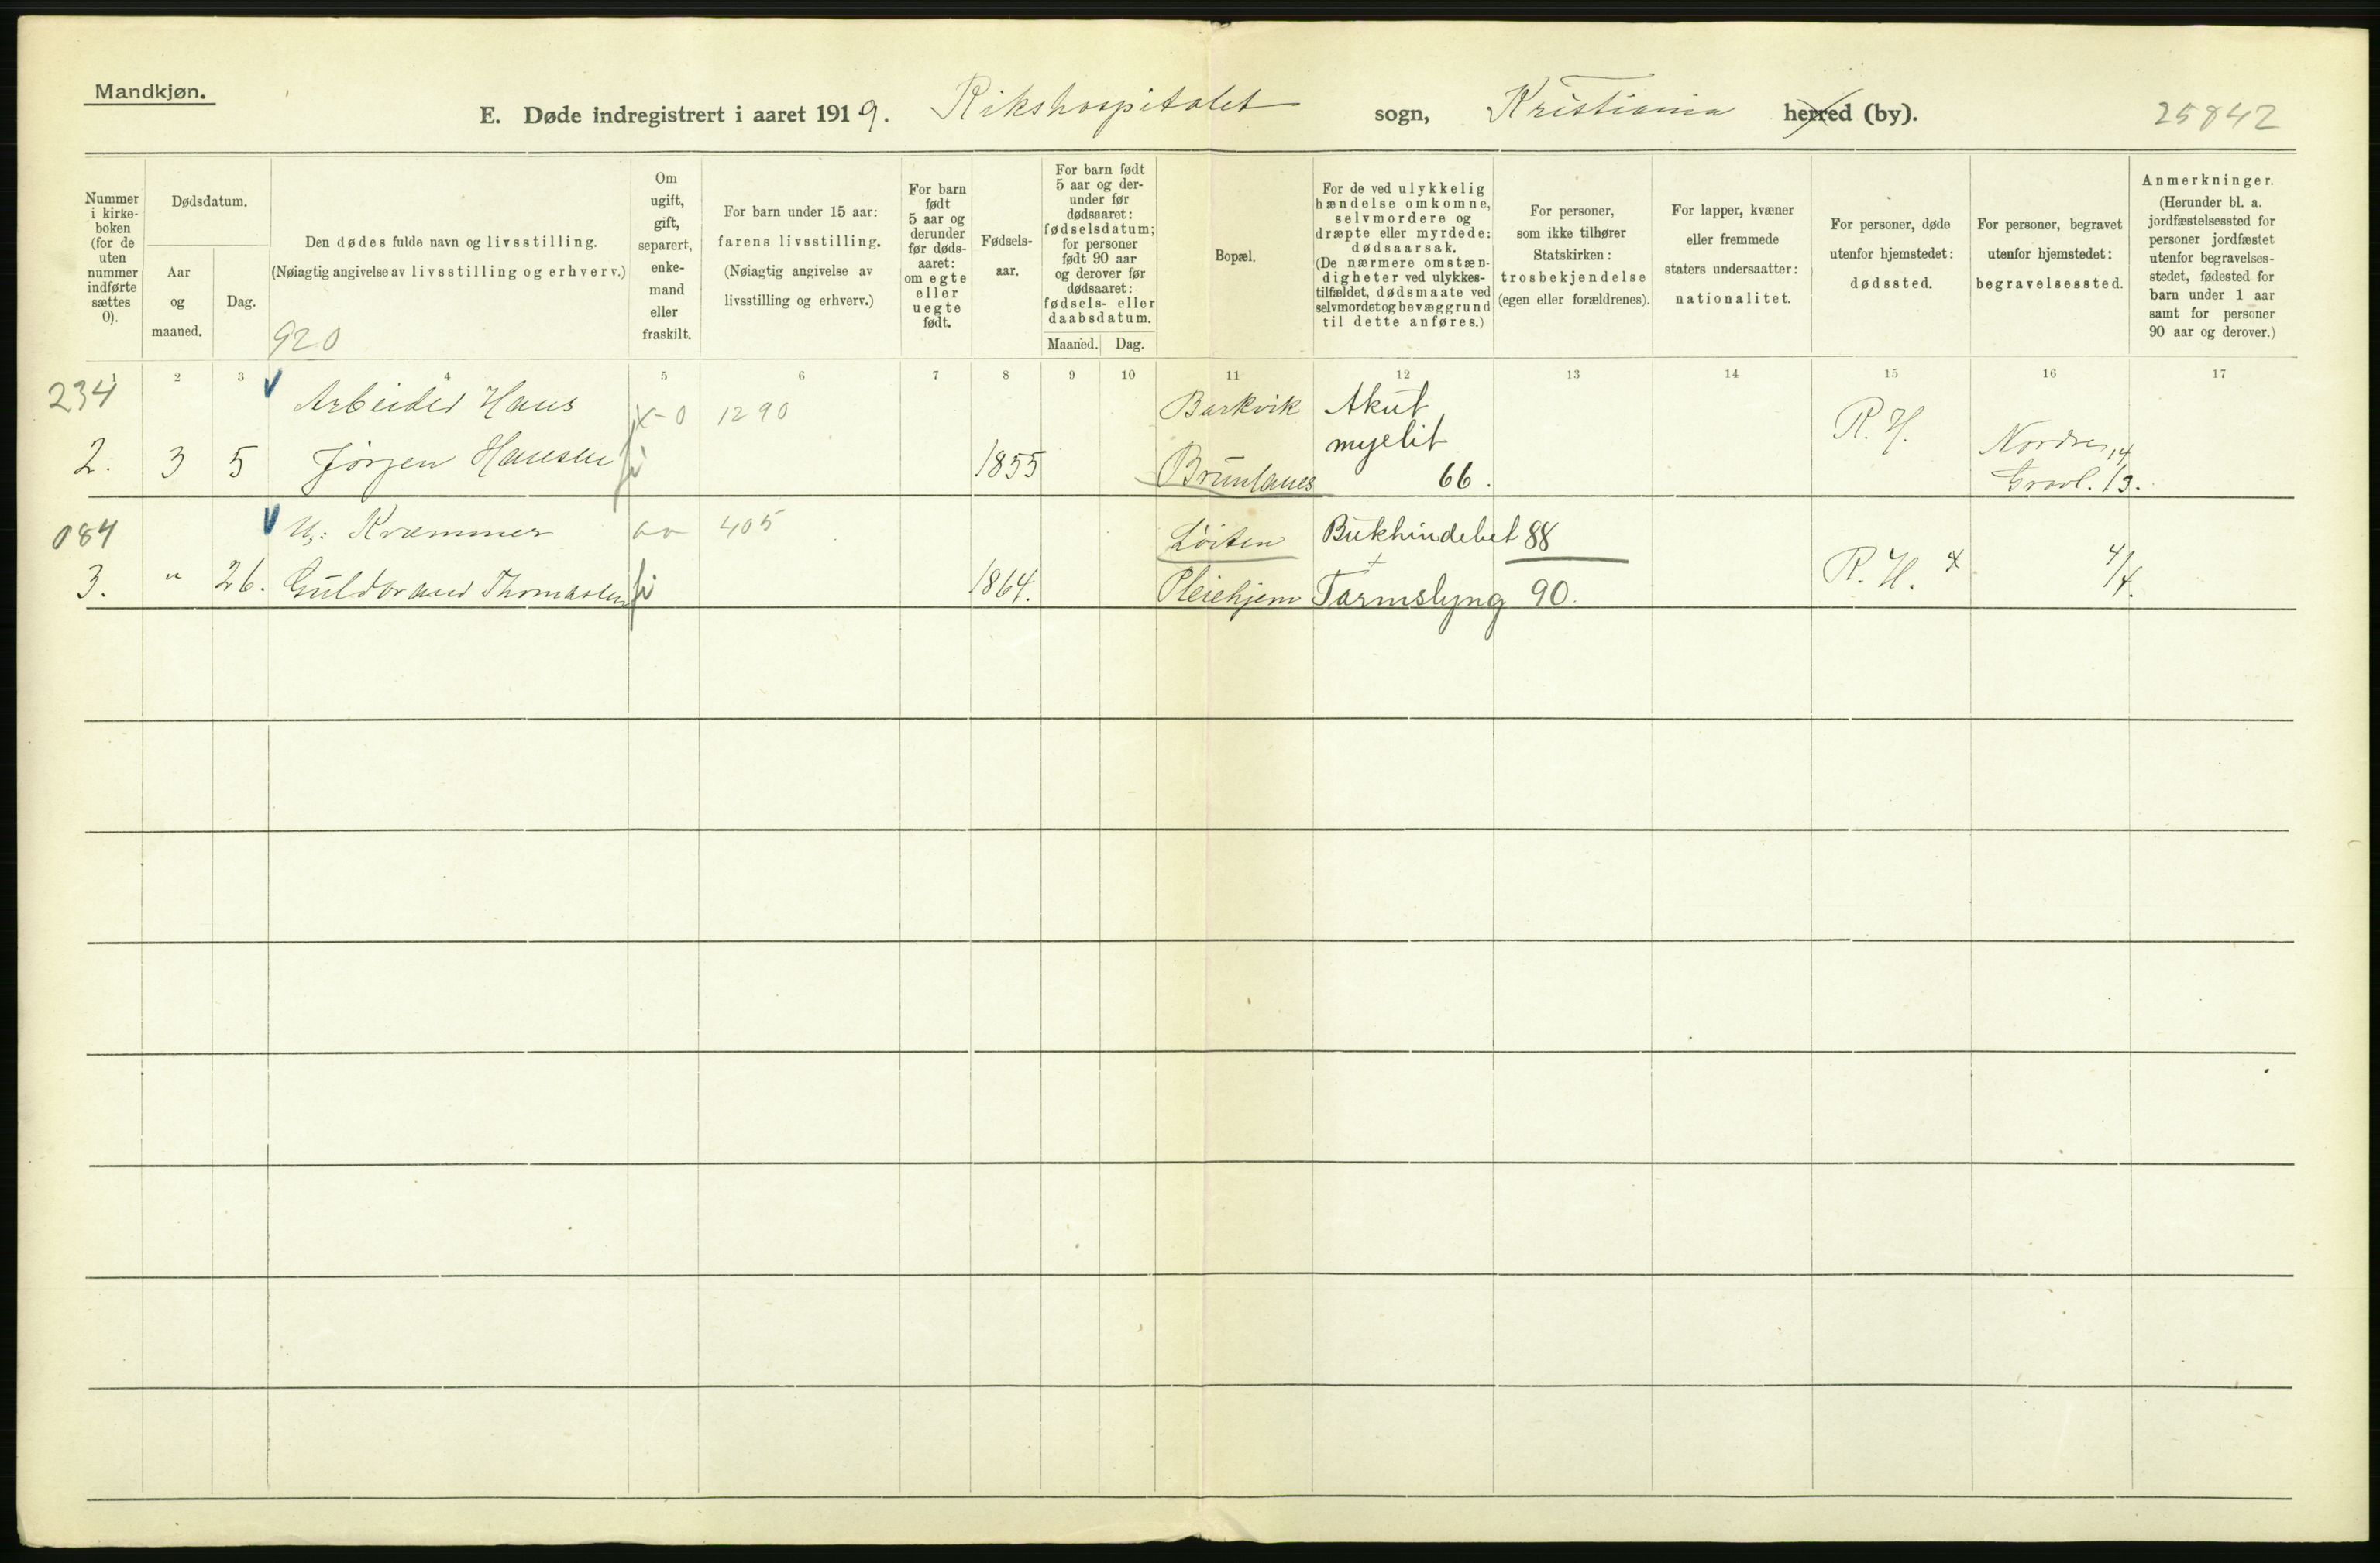 Mandkjøn.
E. Døde indregistrert i aaret 1919. Rikshospitalet sogn, Kristiania herred (by).
25842
Nummer
i kirke-
boken
(for de
uten
nummer
indførte
sættes
0).
Dødsdatum.
Aar
og
maaned.
Dag.
Den dødes fulde navn og livsstilling.
(Nøiagtig angivelse av livsstilling og erhverv.)
920
Om
ugift,
gift,
separert,
enke-
mand
eller
fraskilt.
For barn under 15 aar:
farens livsstilling.
(Nøiagtig angivelse av
livsstilling og erhverv.)
For barn
født
5 aar og
derunder
før døds-
aaret:
om egte
eller
uegte
født.
Fødsels-
aar.
For barn født
5 aar og der-
under før
dødsaaret:
fødselsdatum;
for personer
født 90 aar
og derover før
dødsaaret:
fødsels- eller
daabsdatum.
Maaned. Dag.
Bopæl.
For de ved ulykkelig
hændelse omkomne,
selvmordere og
dræpte eller myrdede:
dødsaarsak.
(De nærmere omstæn-
digheter ved ulykkes-
tilfældet, dødsmaate ved
selvmordet og bevæggrund
til dette anføres.)
For personer,
som ikke tilhører
Statskirken:
trosbekjendelse
(egen eller forældrenes).
For lapper, kvæner
eller fremmede
staters undersaatter:
nationalitet.
For personer, døde
utenfor hjemstedet:
dødssted.
For personer, begravet
utenfor hjemstedet:
begravelsessted.
Anmerkninger.
(Herunder bl. a.
jordfæstelsessted for
personer jordfæstet
utenfor begravelses-
stedet, fødested for
barn under 1 aar
samt for personer
90 aar og derover.)
1 2 3 4 5 6 7 8 9 10 11 12 13 14 15 16 17
234 Arbeider Hans x-0 1290 Barkvik Akut R. H.
myelit Nordre 14
2. 3 5 Jørgen Hansen 1855 Brunlanes 66. Gravl. 13.
084 Kræmmer 405 Løiten Bukhindebet 88
3. " 26. Guldbrand Thomasen 1864. Pleiehjem Tarmslyng 90. R. H. 4/4.